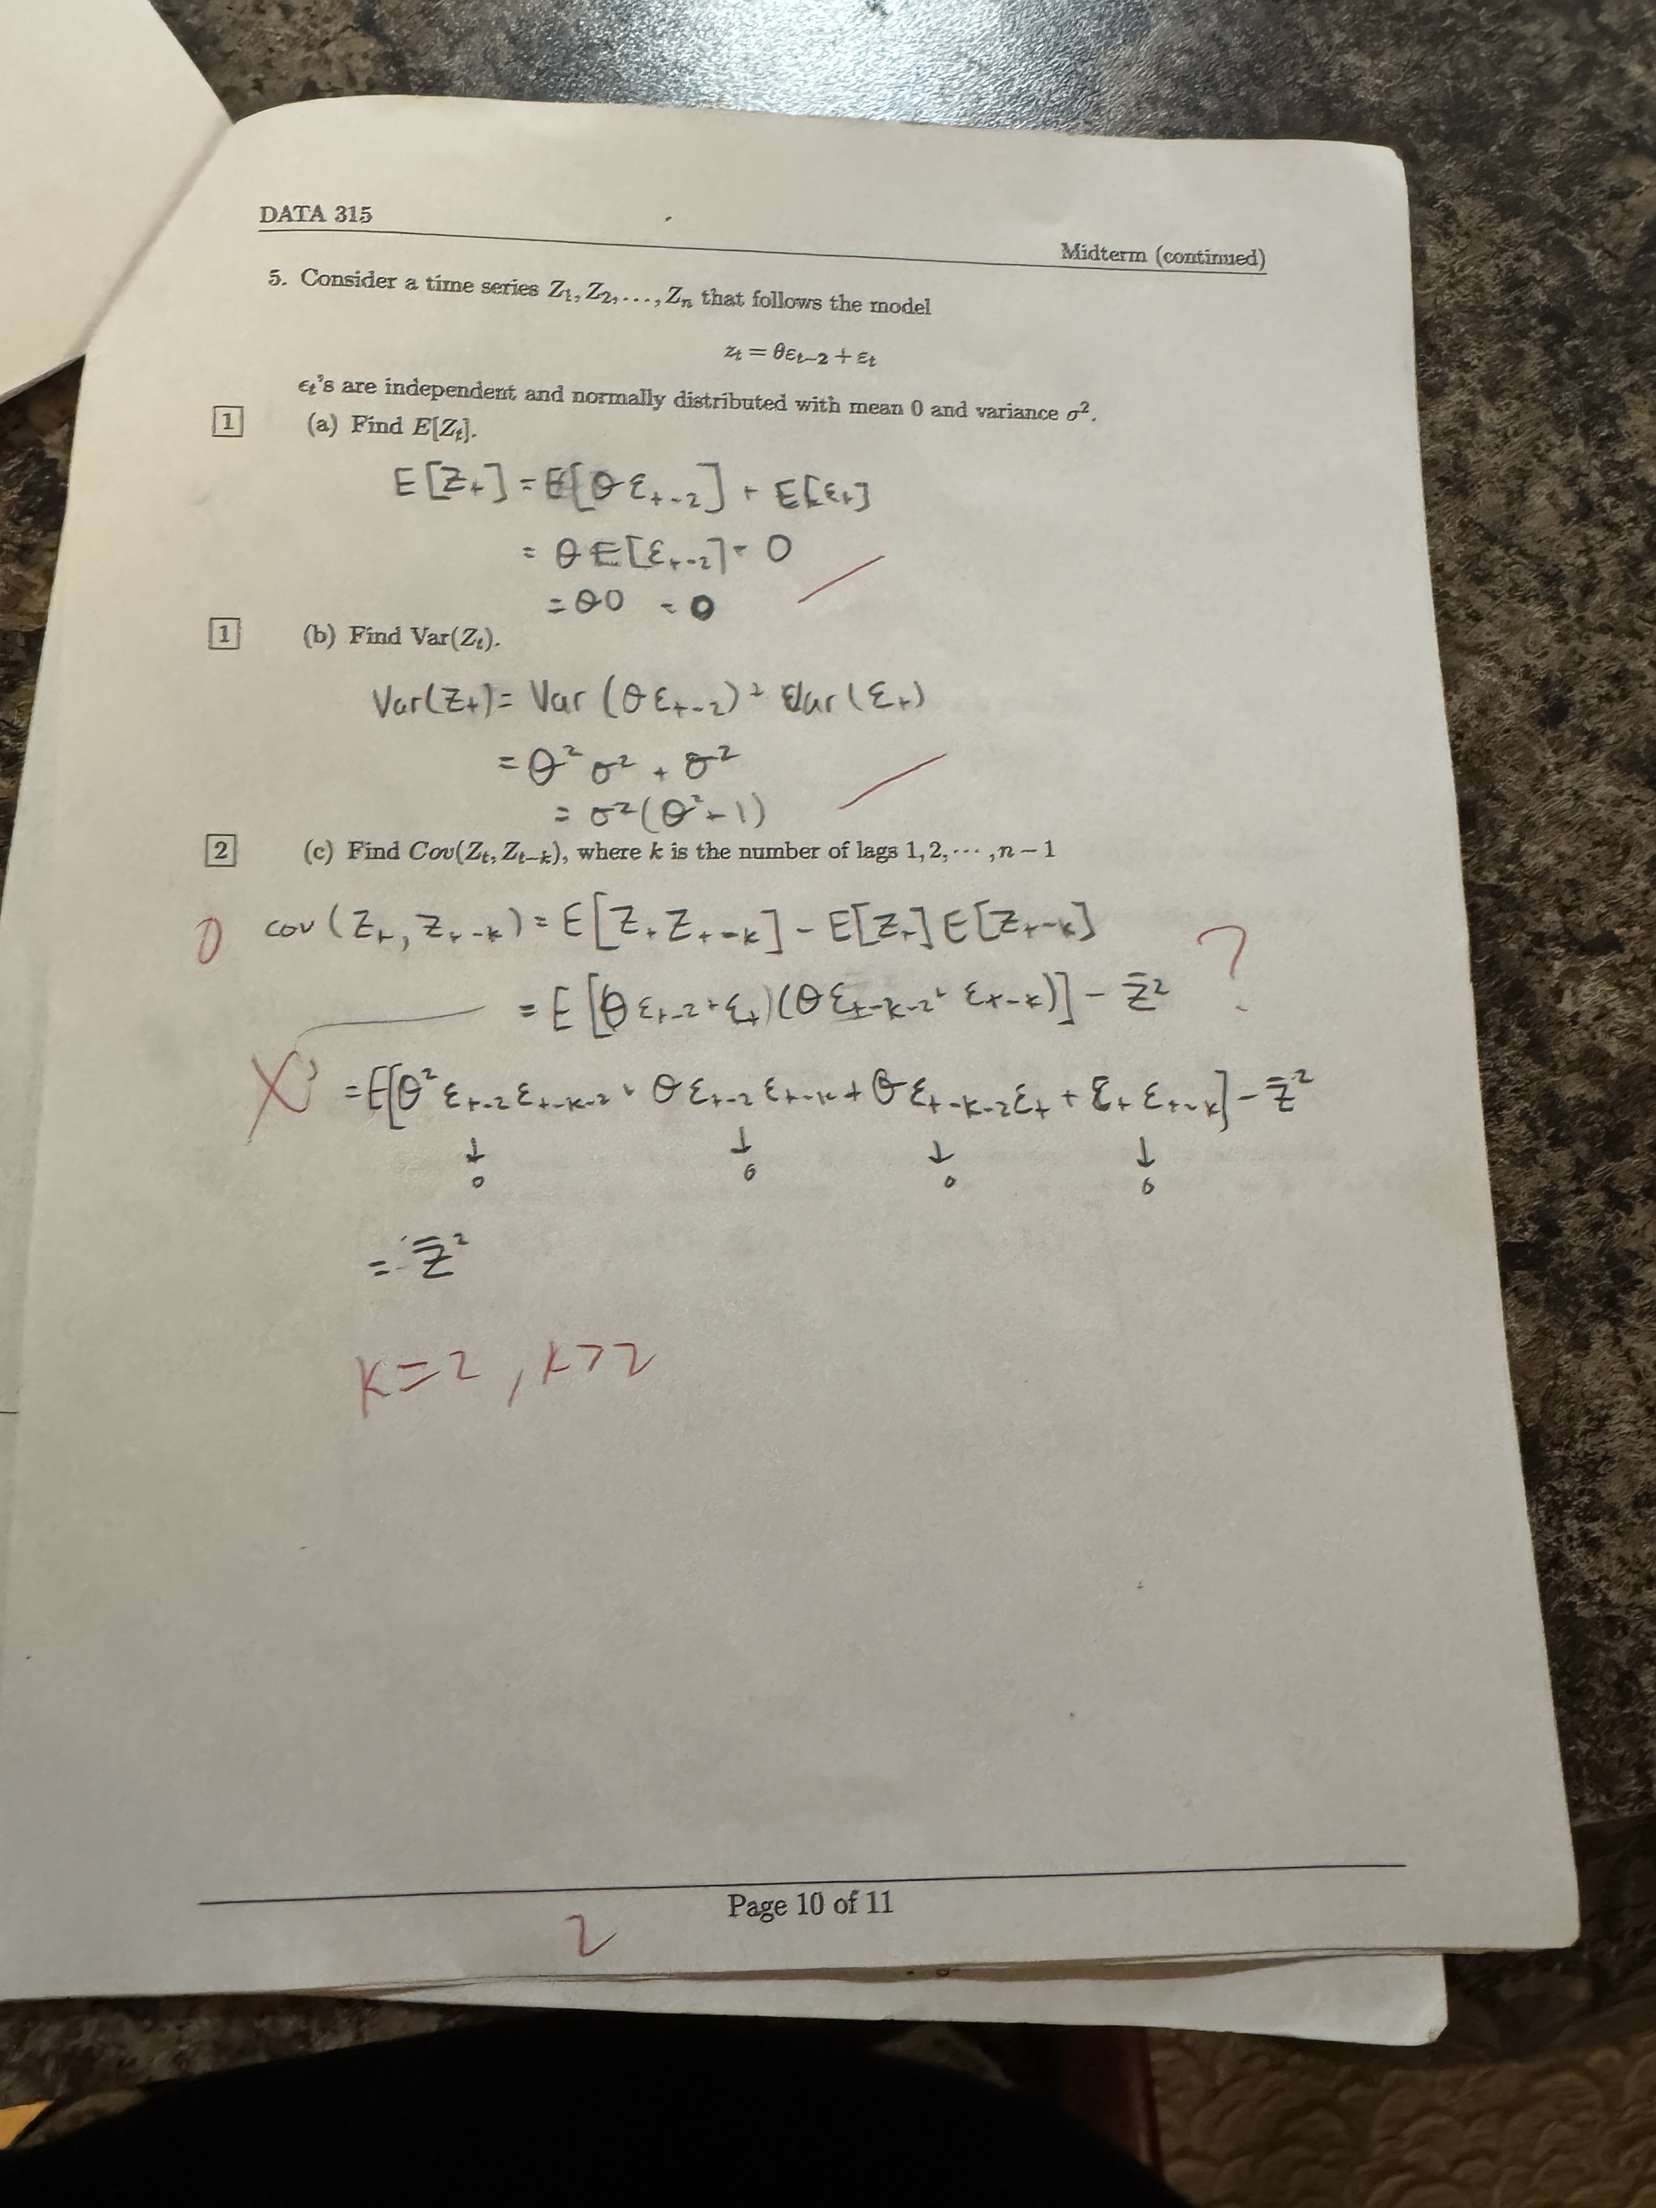 DATA 315
Midterm (continued)
5. Consider a time series Z₁, Z₂, ..., Zₙ that follows the model
zₜ = θεₜ₋₂ + εₜ
ϵₜ's are independent and normally distributed with mean 0 and variance σ².
1 (a) Find E[Zₜ].
E[Zₜ] = E[θεₜ₋₂] + E[εₜ]
= θE[εₜ₋₂] + 0
= θ0 = 0
1 (b) Find Var(Zₜ).
Var(Zₜ) = Var(θεₜ₋₂) + Var(εₜ)
= θ²σ² + σ²
= σ²(θ²+1)
2 (c) Find Cov(Zₜ, Zₜ₋ₖ), where k is the number of lags 1, 2, ⋯ , n − 1
0 cov(Zₜ, Zₜ₋ₖ) = E[ZₜZₜ₋ₖ] − E[Zₜ]E[Zₜ₋ₖ] ?
= E[(θεₜ₋₂+εₜ)(θεₜ₋ₖ₋₂+εₜ₋ₖ)] − z̄²
= E[θ²εₜ₋₂εₜ₋ₖ₋₂ + θεₜ₋₂εₜ₋ₖ + θεₜ₋ₖ₋₂εₜ + εₜεₜ₋ₖ] − z̄²
↓ ↓ ↓ ↓
0 0 0 0
= z̄²
k=2, k>2
Page 10 of 11
2